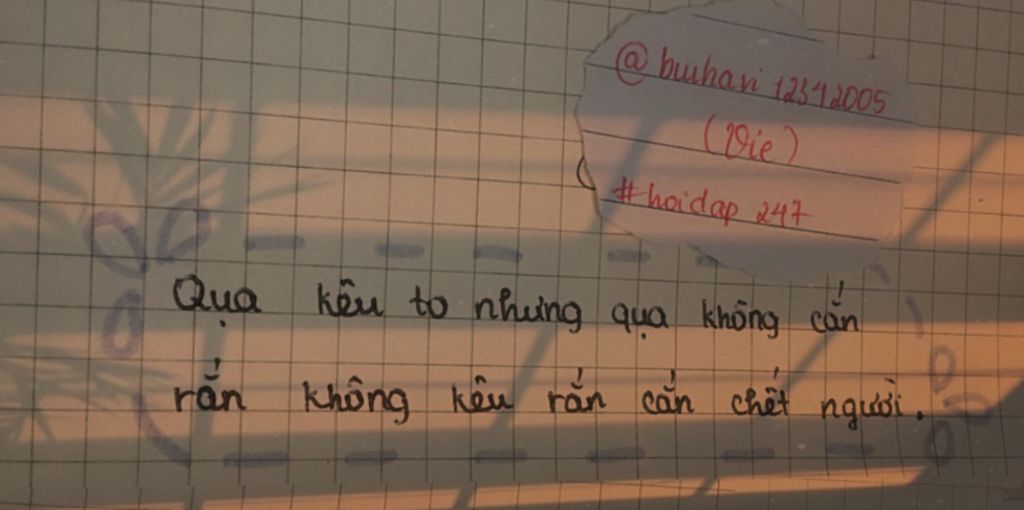 @buihari 12342005
(Vie)
#hoidap 247
Quạ kêu to nhưng quạ không cắn
rắn không kêu rắn cắn chết người.